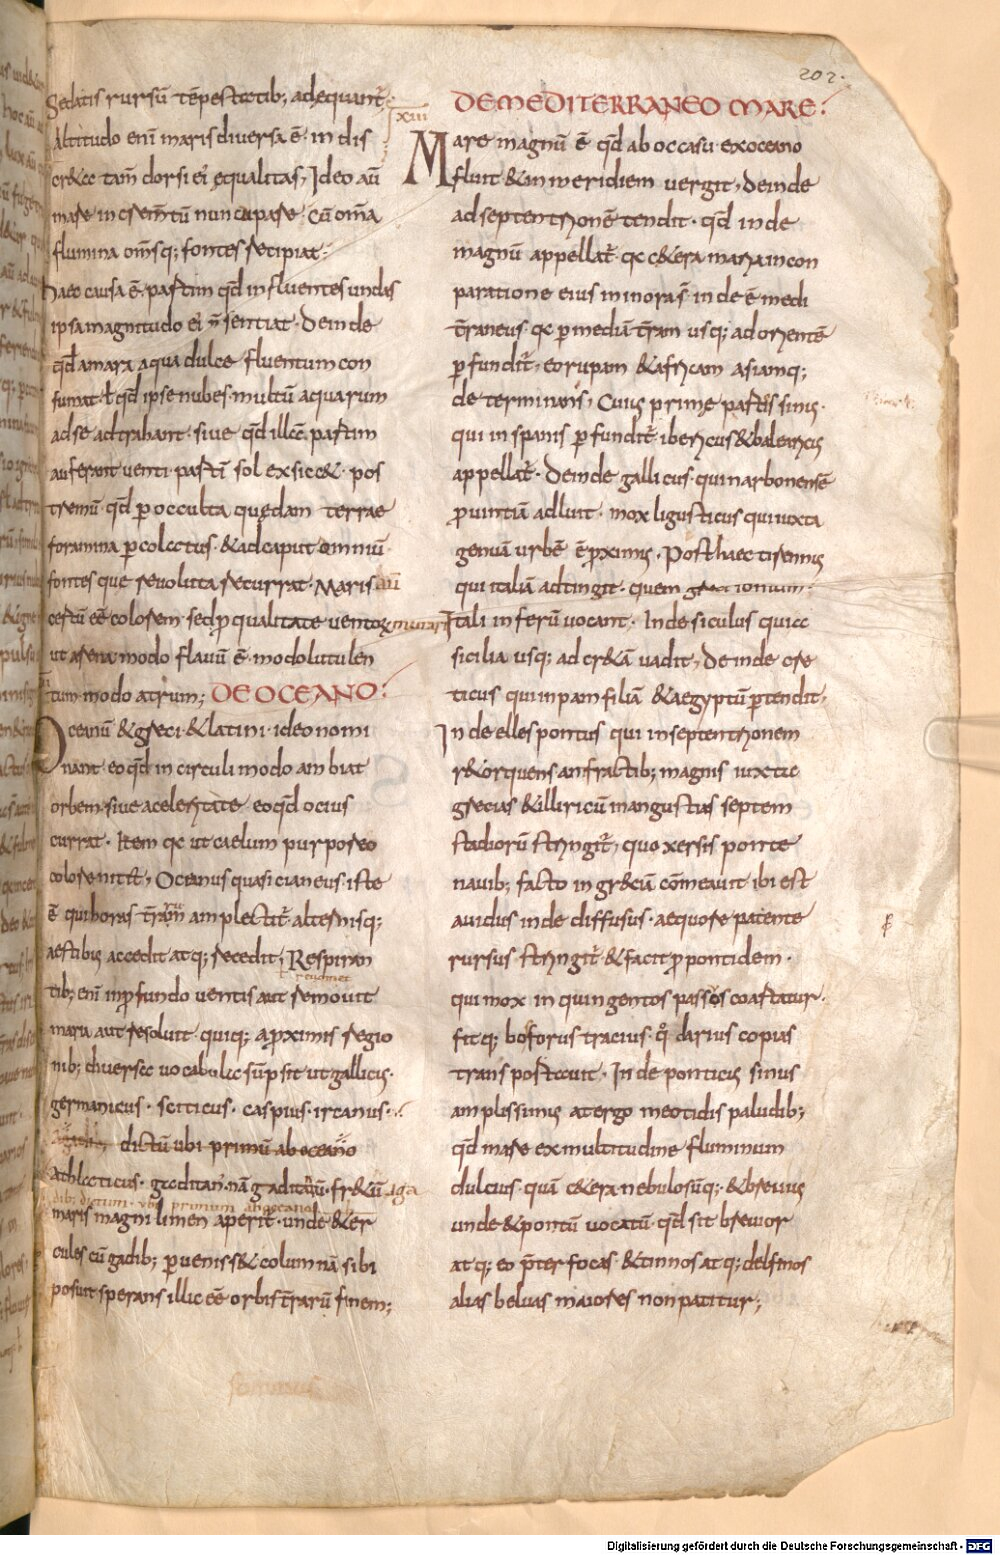 202.
Sedatis rursũ tẽpestatib; adequant̃.
Altitudo eni maris diuersa ẽ. in dis
cr&a tam̃ dorsi ei' equalitas, Ideo aũ
mare in crem̃tũ nuncapare. cũ om̃a
flumina om̃sq; fontes recipiat.
haec causa ẽ. partim qd̃ influentes undas
ipsa magnitudo ei' ñ sentiat. Deinde
qd̃ amara aqua dulce fluentum con
sumat. ł qd̃ ipse nubes multũ aquarum
ad se adtrahant. siue qd̃ illẽ partim
auferant uenti. parti sol exsicc&. pos
tremũ qd̃ p occulta quedam terrae
foramina pcolectus. & ad caput omniũ
fontes que reuoluta recurrat. Maris aũ
certũ eẽ colorem. sed p qualitate uentoꝝ mutari
ut arena modo flauũ ẽ. modo lutulen
tum modo atrum; DE OCEANO:
Oceanũ & greci. & latini. ideo nomi
nant eo qd̃ in circuli modo ambiat
orbem. siue a celeritate eo qd̃ ocius
currat. Item qc ut caelum purporeo
colore nitet, Oceanus quasi cianeus iste
ẽ qui horas t̃rarũ amplectit̃. alternisq;
aestibus accedit atq; recedit, Respiran
tib; eni in pfundo uentis aut remouit
reuomet
maria aut resoluit. quiq; a pximis regio
nib; diuersa uocabula sũpsit ut gallicus.
germanicus. sciticus. caspius. ircanus.
dictũ ubi primũ ab oceano
athlaticus. gaditan'. nã gaditanũ. fr&ũ a ga
dib; dictum. ubi primum ab oceano
maris magni limen aperit̃. unde & er
cules cũ gadib; peruenisset columnã sibi
posuit sperans illic eẽ orbis t̃rarũ finem;
XIII
DE MEDITERRANEO MARE:
Mare magnũ ẽ qd̃ ab occasu ex oceano
fluit & in meridiem uergit, deinde
ad septentrionẽ tendit. qd̃ inde
magnũ appellat̃. qc c&era maria incon
paratione eius minora s̃. inde ẽ medi
t̃raneus. qc p mediã t̃ram usq; ad orientẽ
pfundit̃, eorupam & africam asiamq;
determinans, Cuius prime partis sinus.
qui in spanis pfundit̃. ibericus & balearicus
appellat̃. Deinde gallicus. qui narbonensẽ
puintiã adluit. mox ligusticus qui iuxta
genuã urbẽ ẽ pximus. Post haec tirennus
qui italiã adtingit. quem greci ionium.
Itali inferũ uocant. Inde siculus qui a
sicilia usq; ad cr&ã uadit, Deinde cre
ticus qui in pamfiliã & aegyptũ ptendit.
Inde ellespontus qui in septentrionem
r&orquens anfractib; magnis iuxta
grecias & illiricũ in angustias septem
stadiorũ stringit̃, quo xersis ponte
nauib; facto in gr&iã com̃eauit ibi est
auidus inde diffusus. aequore patente
rursus stringit̃ & facit ppontidem.
qui mox in quingentos passos coartatur.
fitq; boforus tracius. q° darius copias
transportauit. Inde ponticus sinus
amplissimus a tergo meotidis paludib;
qd̃ mare ex multitudine fluminum
dulcius quã c&era nebulosũq; & breuius
unde & pontũ uocatũ qd̃ sit breuior
atq; eo p̃ter focas & tinnos atq; delfinos
alias beluas maiores non patitur;
Digitalisierung gefördert durch die Deutsche Forschungsgemeinschaft - DFG